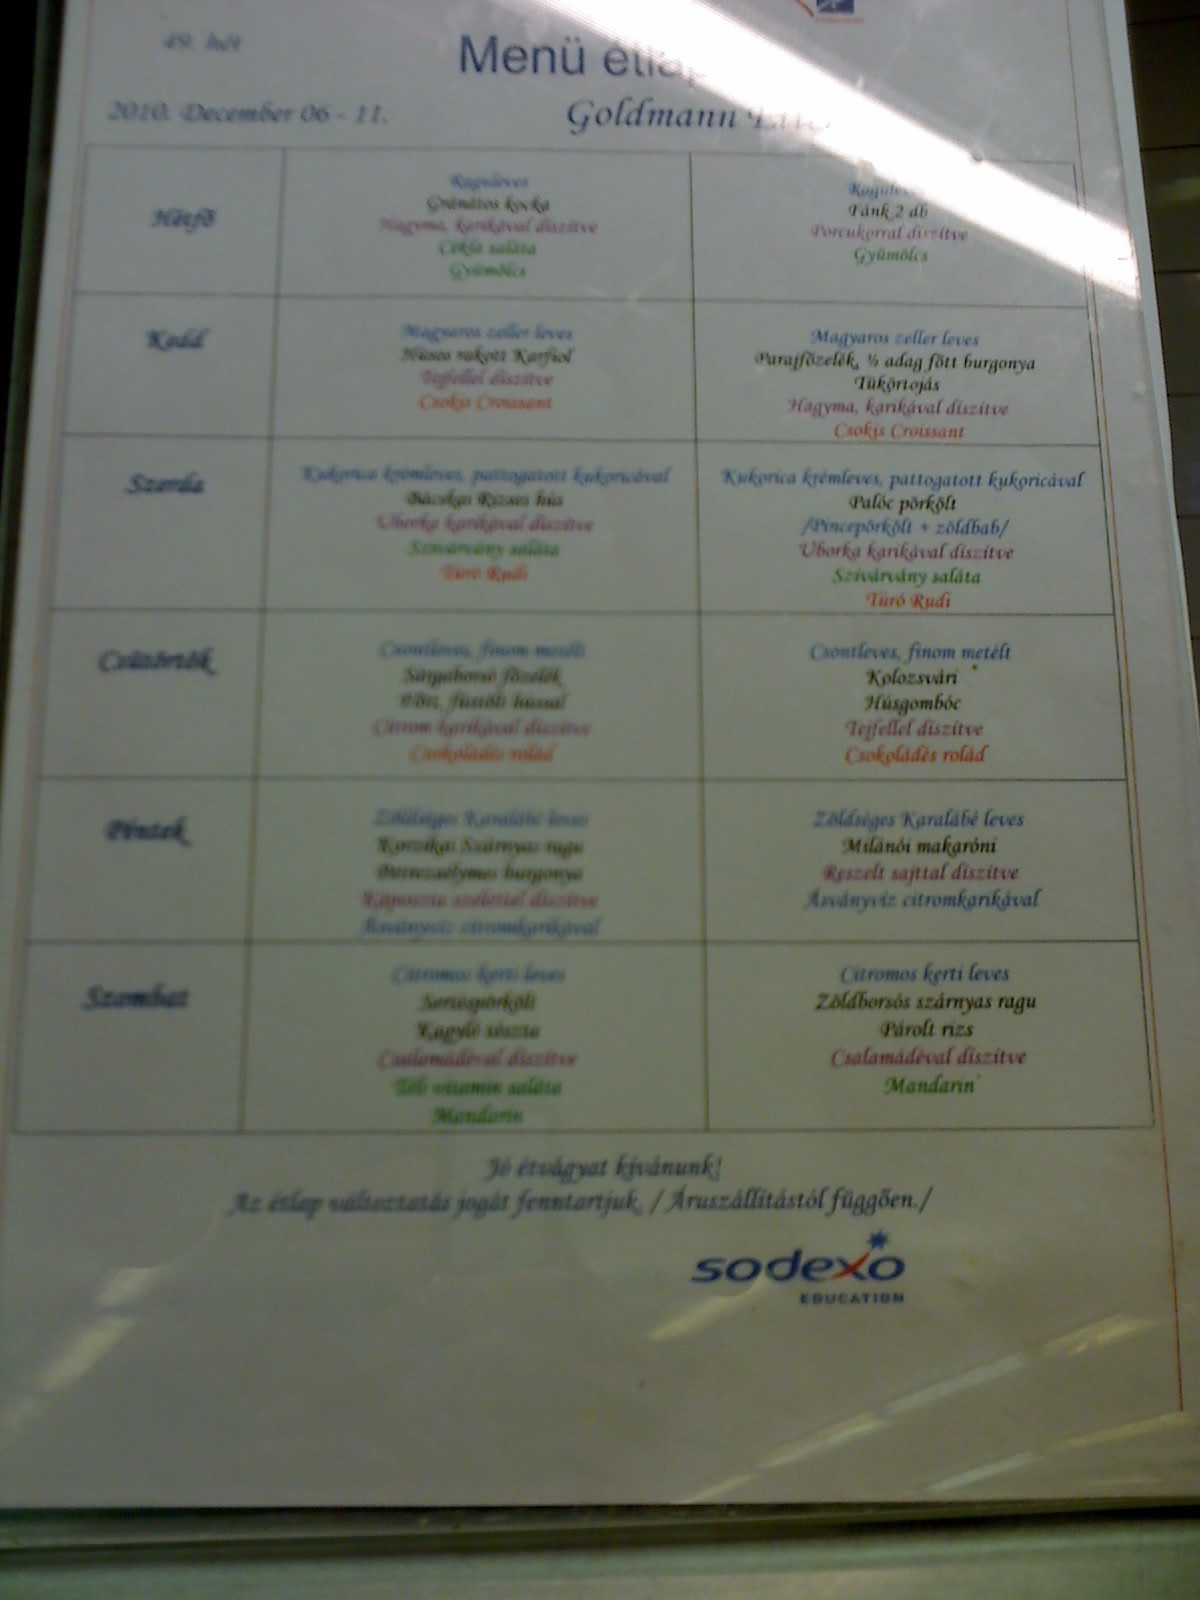 49. hét
Menü étlap
2010. December 06 - 11.
Goldmann
Hétfő
Raguleves
Gránátos kocka
Hagyma, karikával díszítve
Cékla saláta
Gyümölcs
Raguleves
Fánk 2 db
Porcukorral díszítve
Gyümölcs
Kedd
Magyaros zeller leves
Húsos rakott Karfiol
Tejfellel díszítve
Csokis Croissant
Magyaros zeller leves
Parajfőzelék, ½ adag főtt burgonya
Tükörtojás
Hagyma, karikával díszítve
Csokis Croissant
Szerda
Kukorica krémleves, pattogatott kukoricával
Bácskai Rizses hús
Uborka karikával díszítve
Szivárvány saláta
Túró Rudi
Kukorica krémleves, pattogatott kukoricával
Palóc pörkölt
/Pincepörkölt + zöldbab/
Uborka karikával díszítve
Szivárvány saláta
Túró Rudi
Csütörtök
Csontleves, finom metélt
Sárgaborsó főzelék
Főtt, füstölt hússal
Citrom karikával díszítve
Csokoládés rolád
Csontleves, finom metélt
Kolozsvári
Húsgombóc
Tejfellel díszítve
Csokoládés rolád
Péntek
Zöldséges Karalábé leves
Korzikai Szárnyas ragu
Petrezselymes burgonya
Káposzta szelettel díszítve
Ásványvíz citromkarikával
Zöldséges Karalábé leves
Milánói makaróni
Reszelt sajttal díszítve
Ásványvíz citromkarikával
Szombat
Citromos kerti leves
Sertéspörkölt
Kagyló tészta
Csalamádéval díszítve
Téli vitamin saláta
Mandarin
Citromos kerti leves
Zöldborsós szárnyas ragu
Párolt rizs
Csalamádéval díszítve
Mandarin
Jó étvágyat kívánunk!
Az étlap változtatás jogát fenntartjuk. / Áruszállítástól függően./
sodexo
EDUCATION